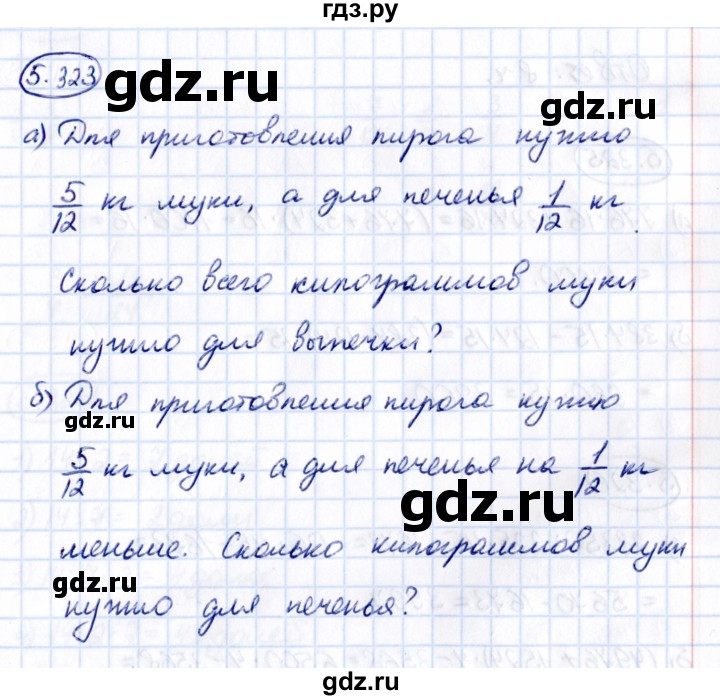 гдз.ру
5.323
gdz.ru
gdz.ru
а) Для приготовления пирога нужно
5/12 кг муки, а для печенья 1/12 кг.
Сколько всего килограммов муки
нужно для выпечки?
gdz.ru
б) Для приготовления пирога нужно
gdz.ru
5/12 кг муки, а для печенья на 1/12 кг
gdz.ru
меньше. Сколько килограммов муки
gdz.ru
нужно для печенья?
gdz.ru
гдз.ру